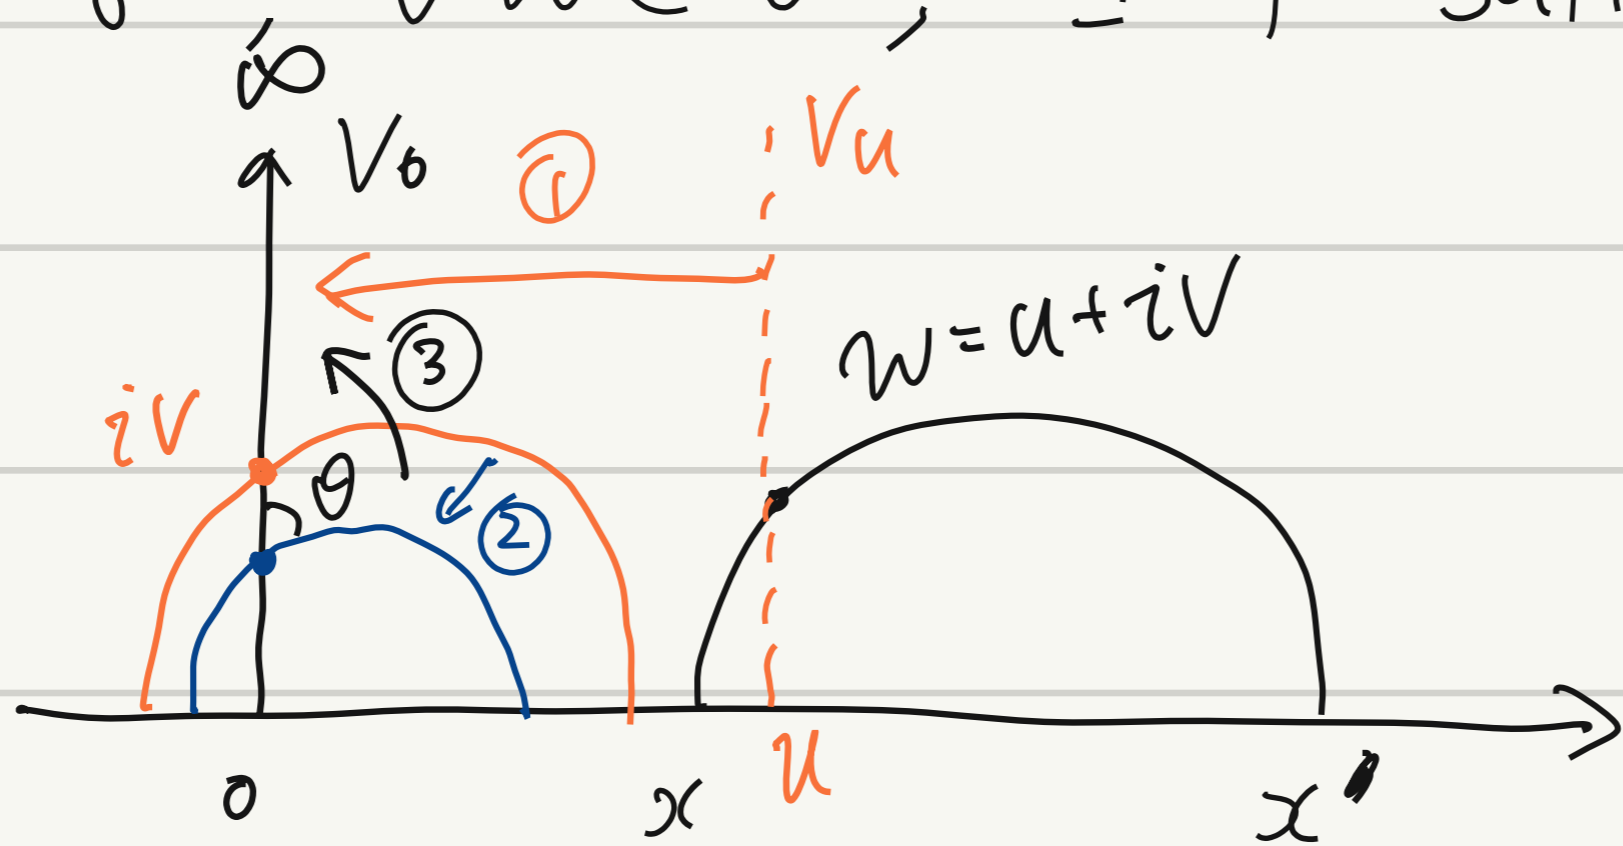 ∞
V₀
①
Vu
w = u + iv
③
iv
θ
②
0
x
u
x'